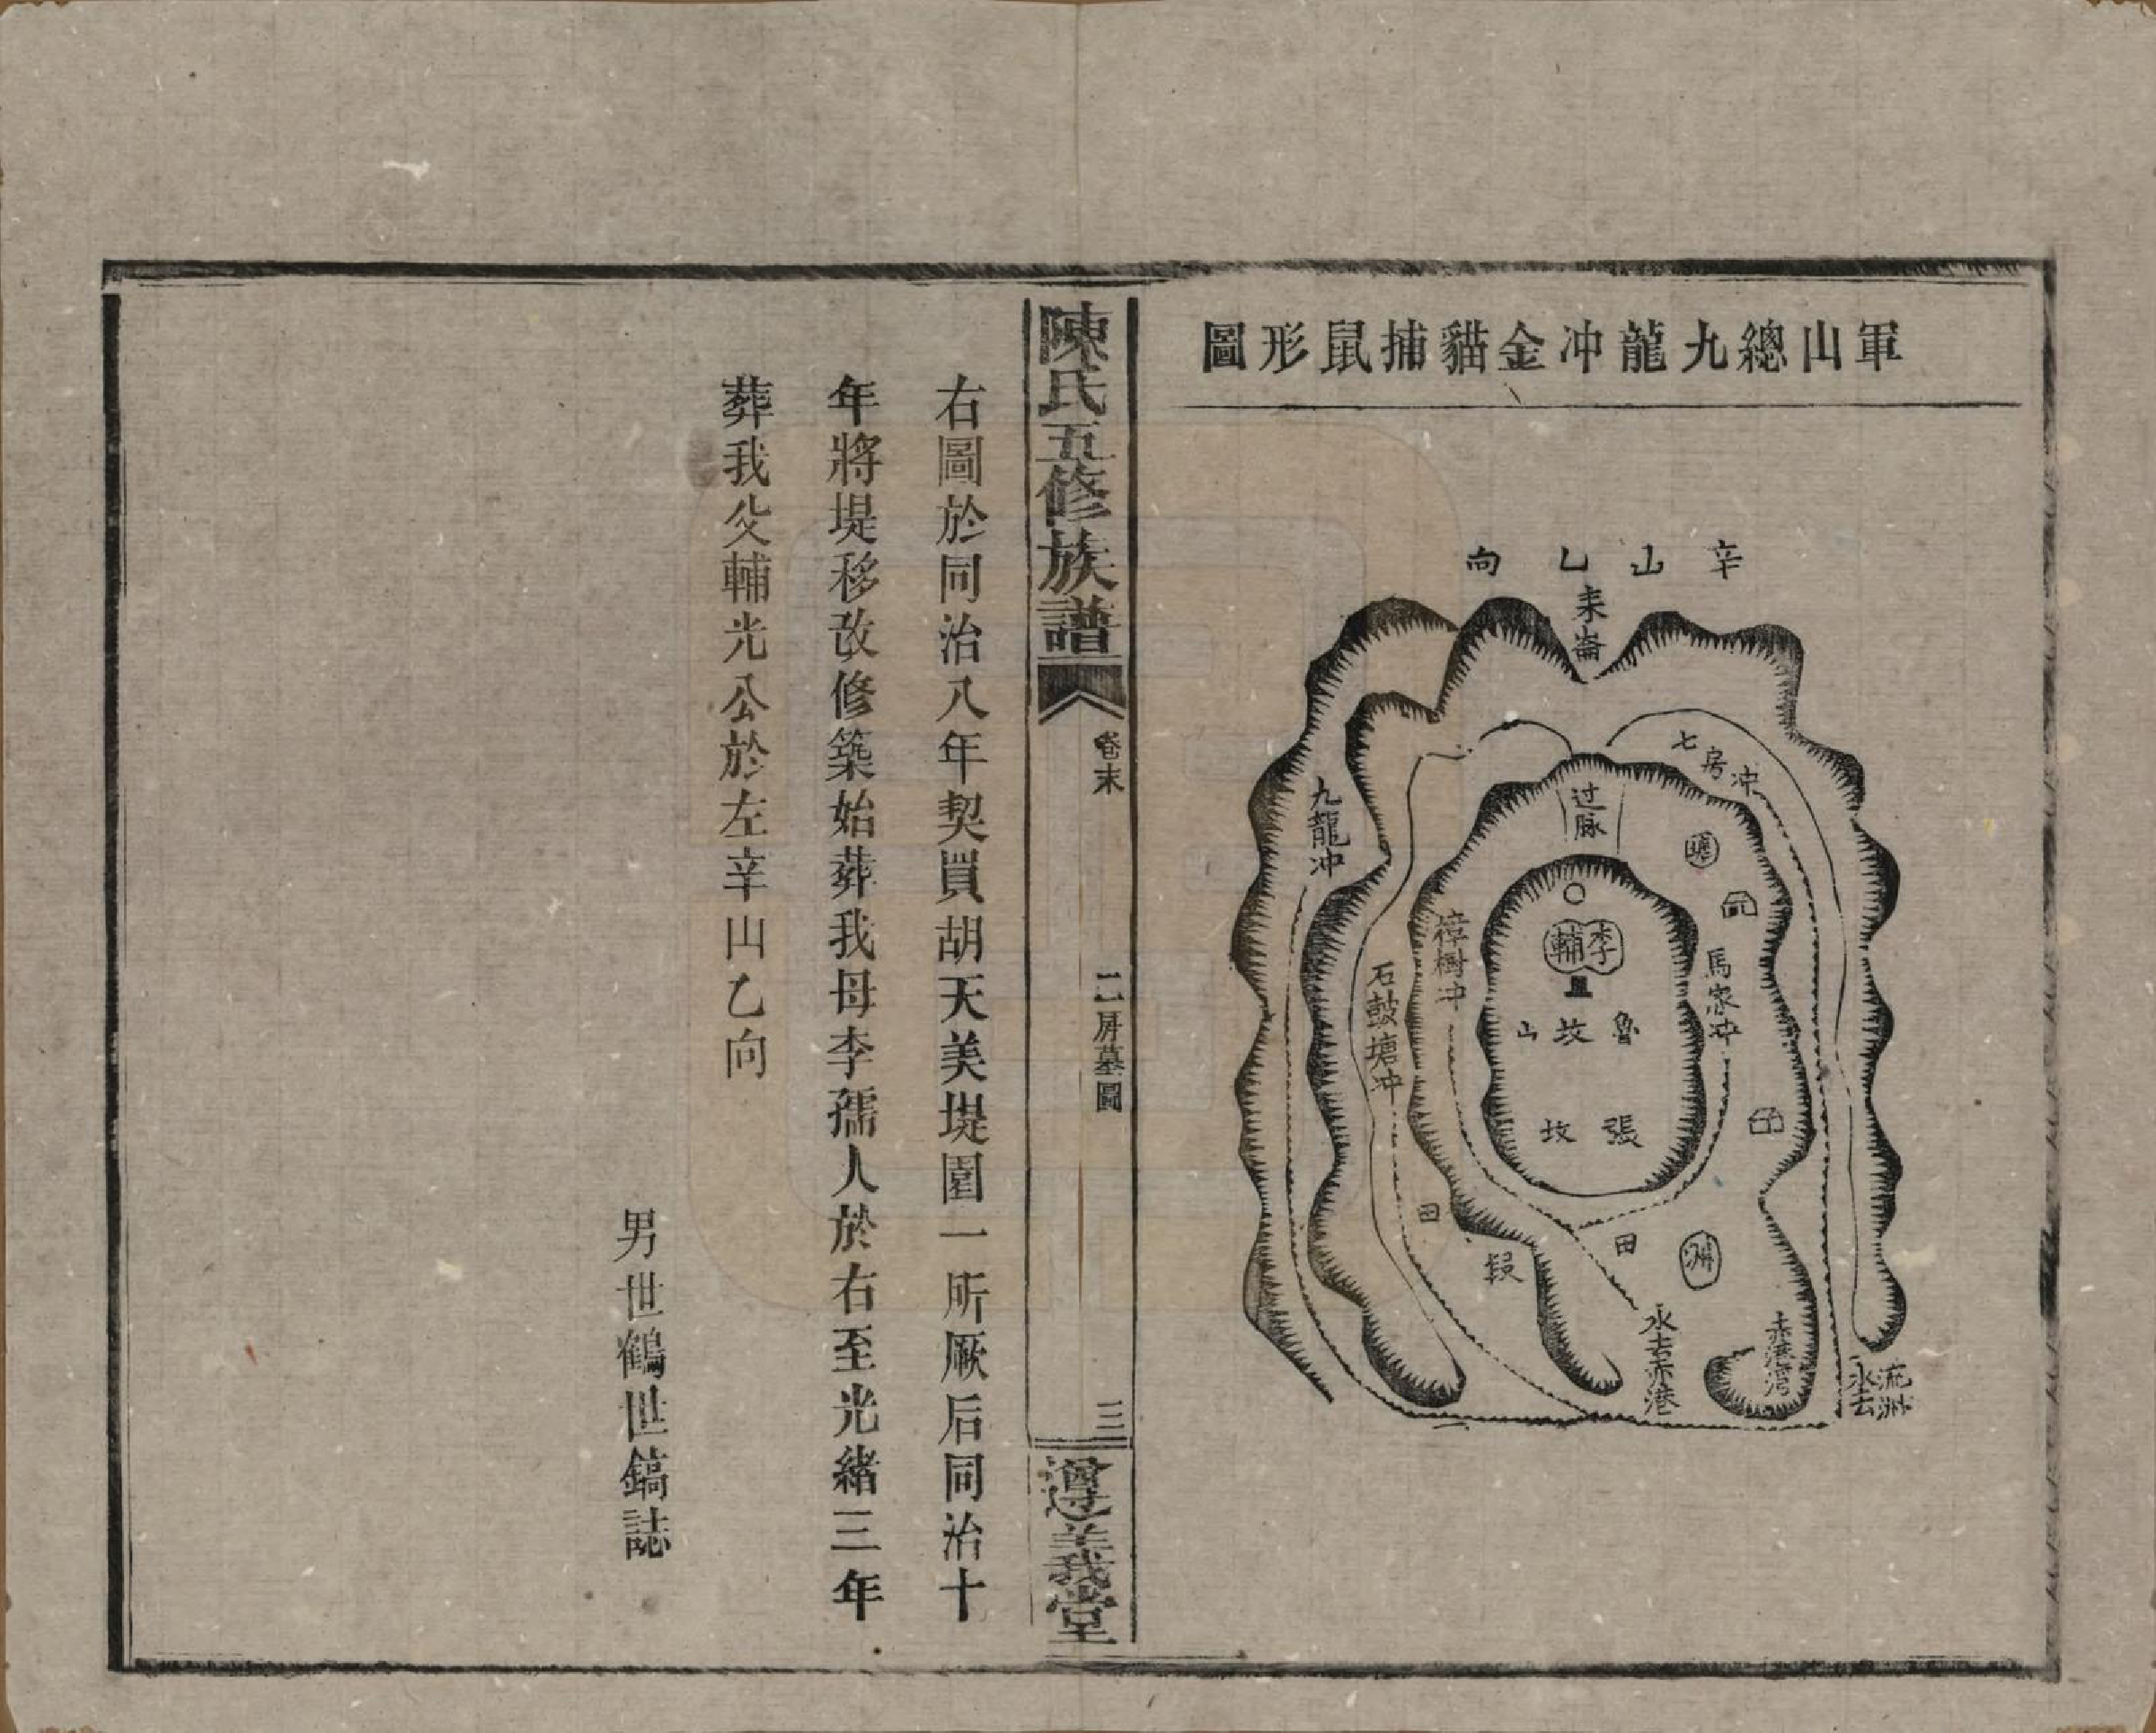 軍山總九龍冲金貓捕鼠形圖
辛山乙向
來崙
七房冲
过脉
九龍冲
塘
李
輔
樟樹冲
馬家冲
石鼓塘冲
魯坟山
張坟
田
田
塅
洲
水去赤港
赤港湾
流洲
水去
陳氏五修族譜
卷末
二房墓圖
三
遵義堂
右圖於同治八年契買胡天美堤園一所厥后同治十
年將堤移改修築始葬我母李孺人於右至光緒三年
葬我父輔光公於左辛山乙向
男世鶴世鎬誌